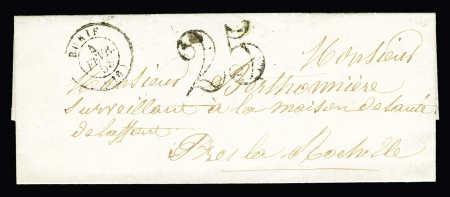 RUMIF
4
FEVR.
(16)
25
Monsieur
Monsieur Berthonnière
Surveillant à la maison de santé
de Laffont
Près la Rochelle